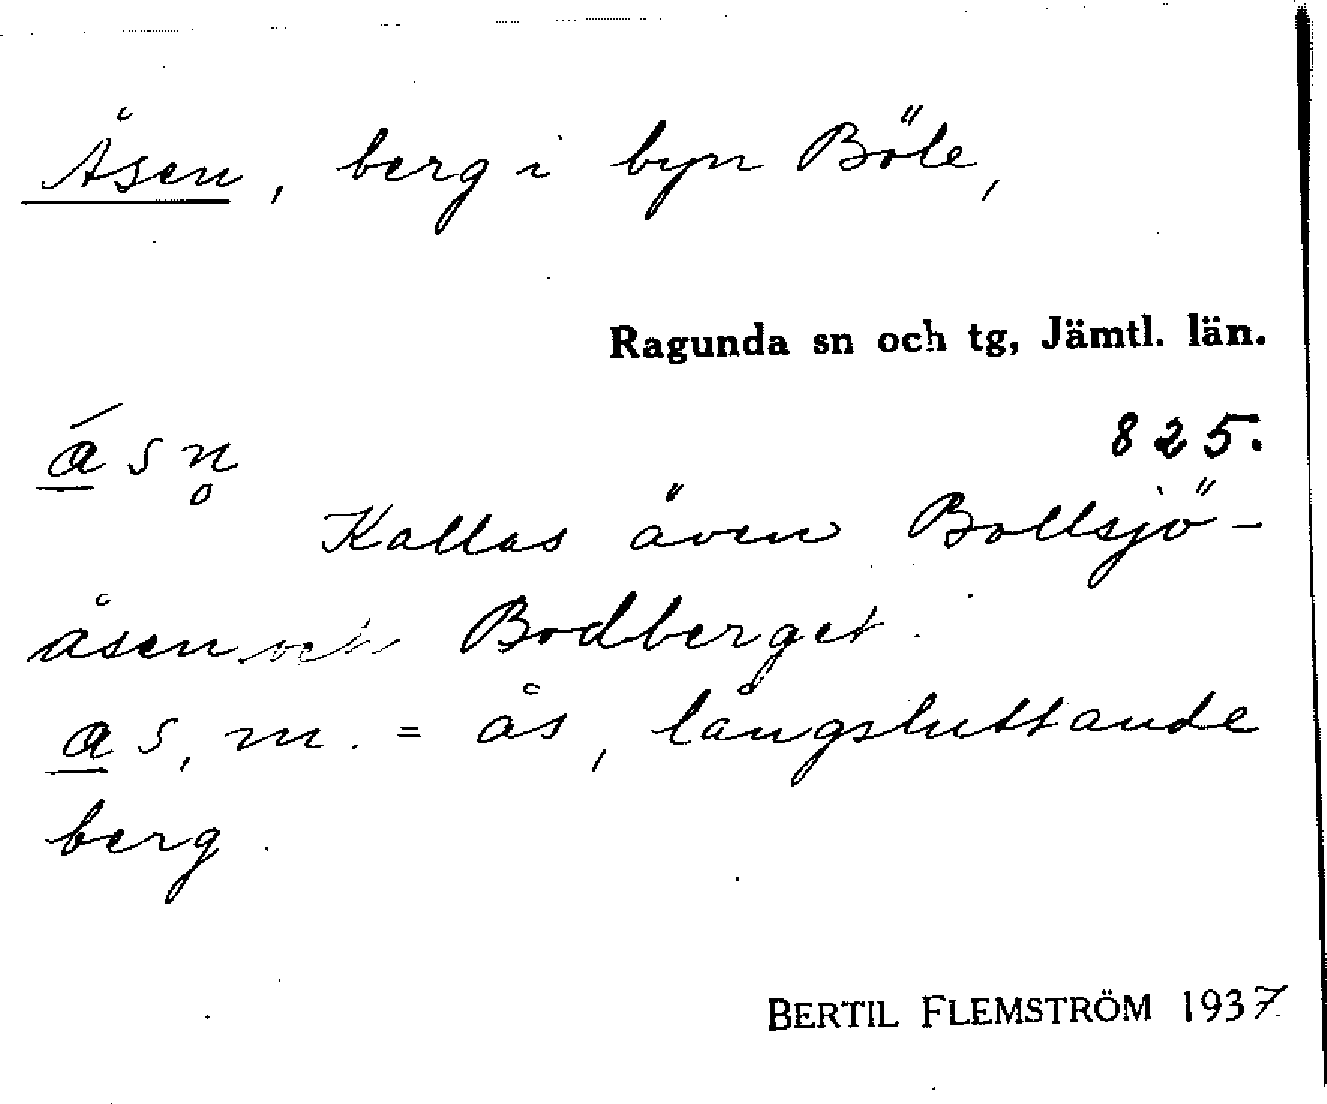 Åsen, berg i byn Böle,
Ragunda sn och tg, Jämtl. län.
á̱sn̥
825.
Kallas även Bollsjö-
åsen och Bodberget.
a̱s, m. = ås, långsluttande
berg.
BERTIL FLEMSTRÖM 1937